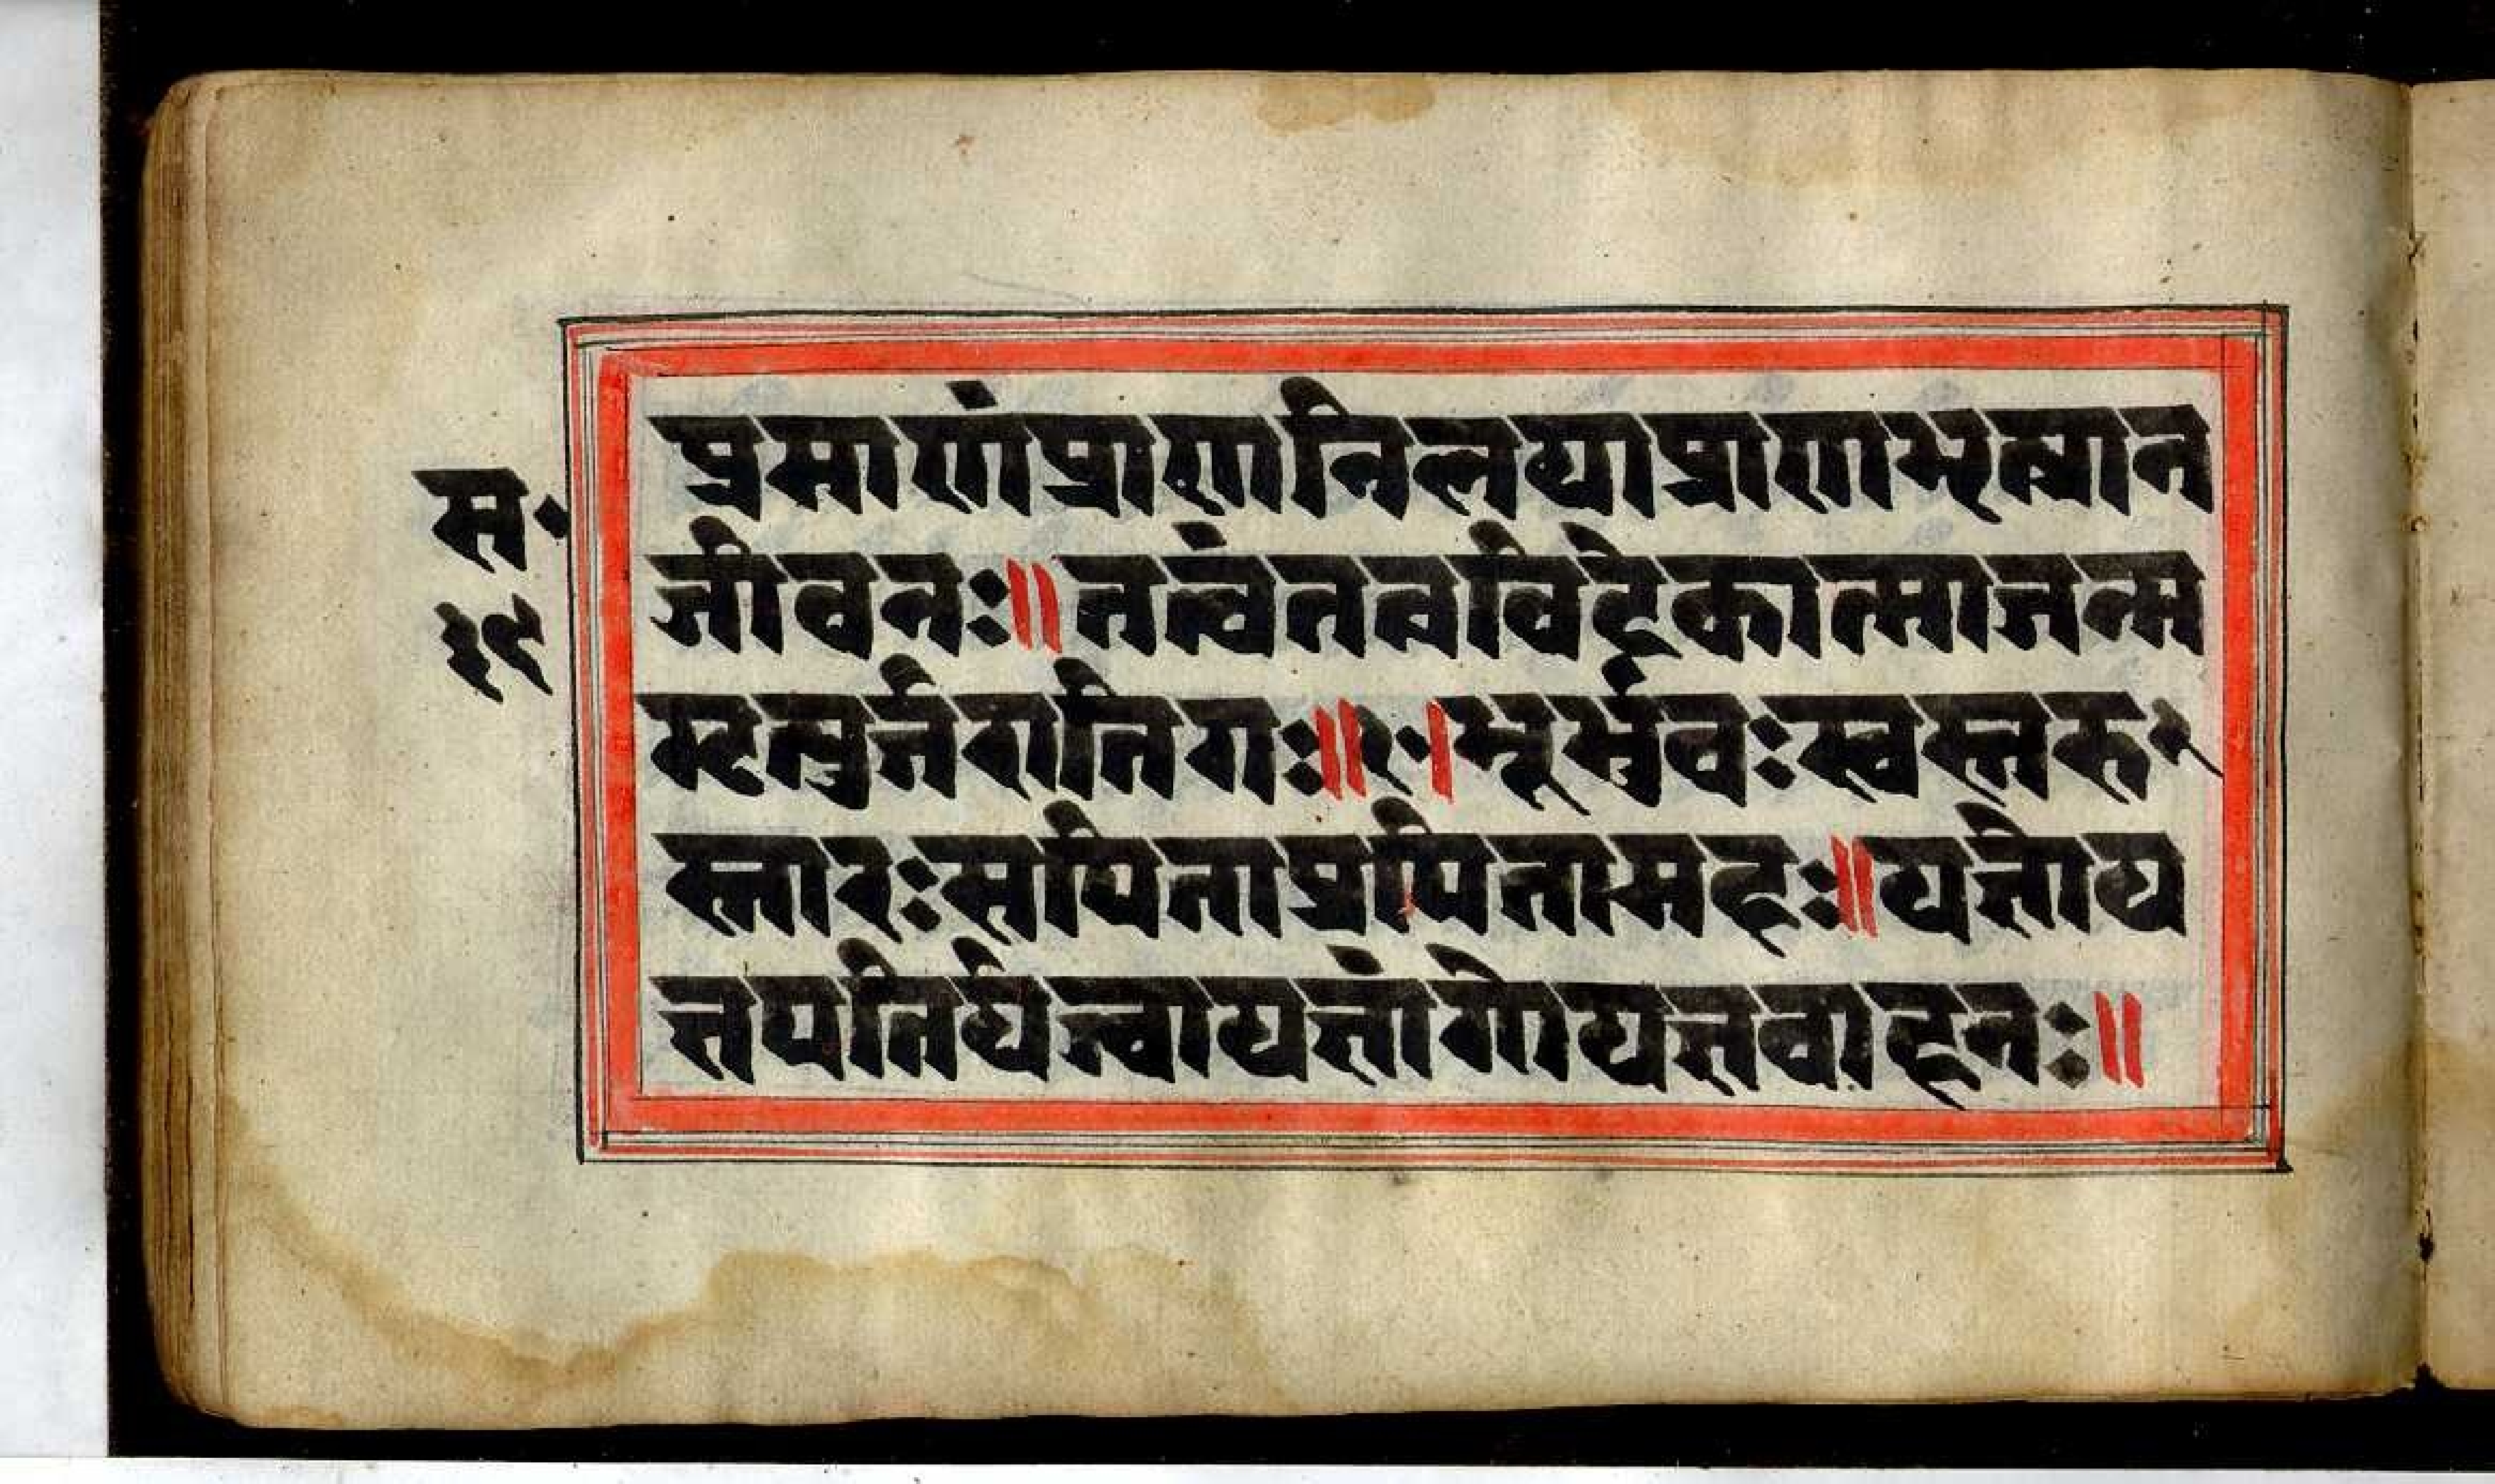 प्रमाणंप्राणनिलयाप्राणभृत्प्रान
स॰
जीवनः॥तत्वंतत्वविदेकात्माजन्म
१९
मृत्युर्जरातिगः॥१॰।भूर्भुवःस्वस्तरु
स्तारःसपिताप्रपितामहः॥यज्ञोय
ज्ञपतिर्यज्वायज्ञांगोयज्ञवाहनः॥